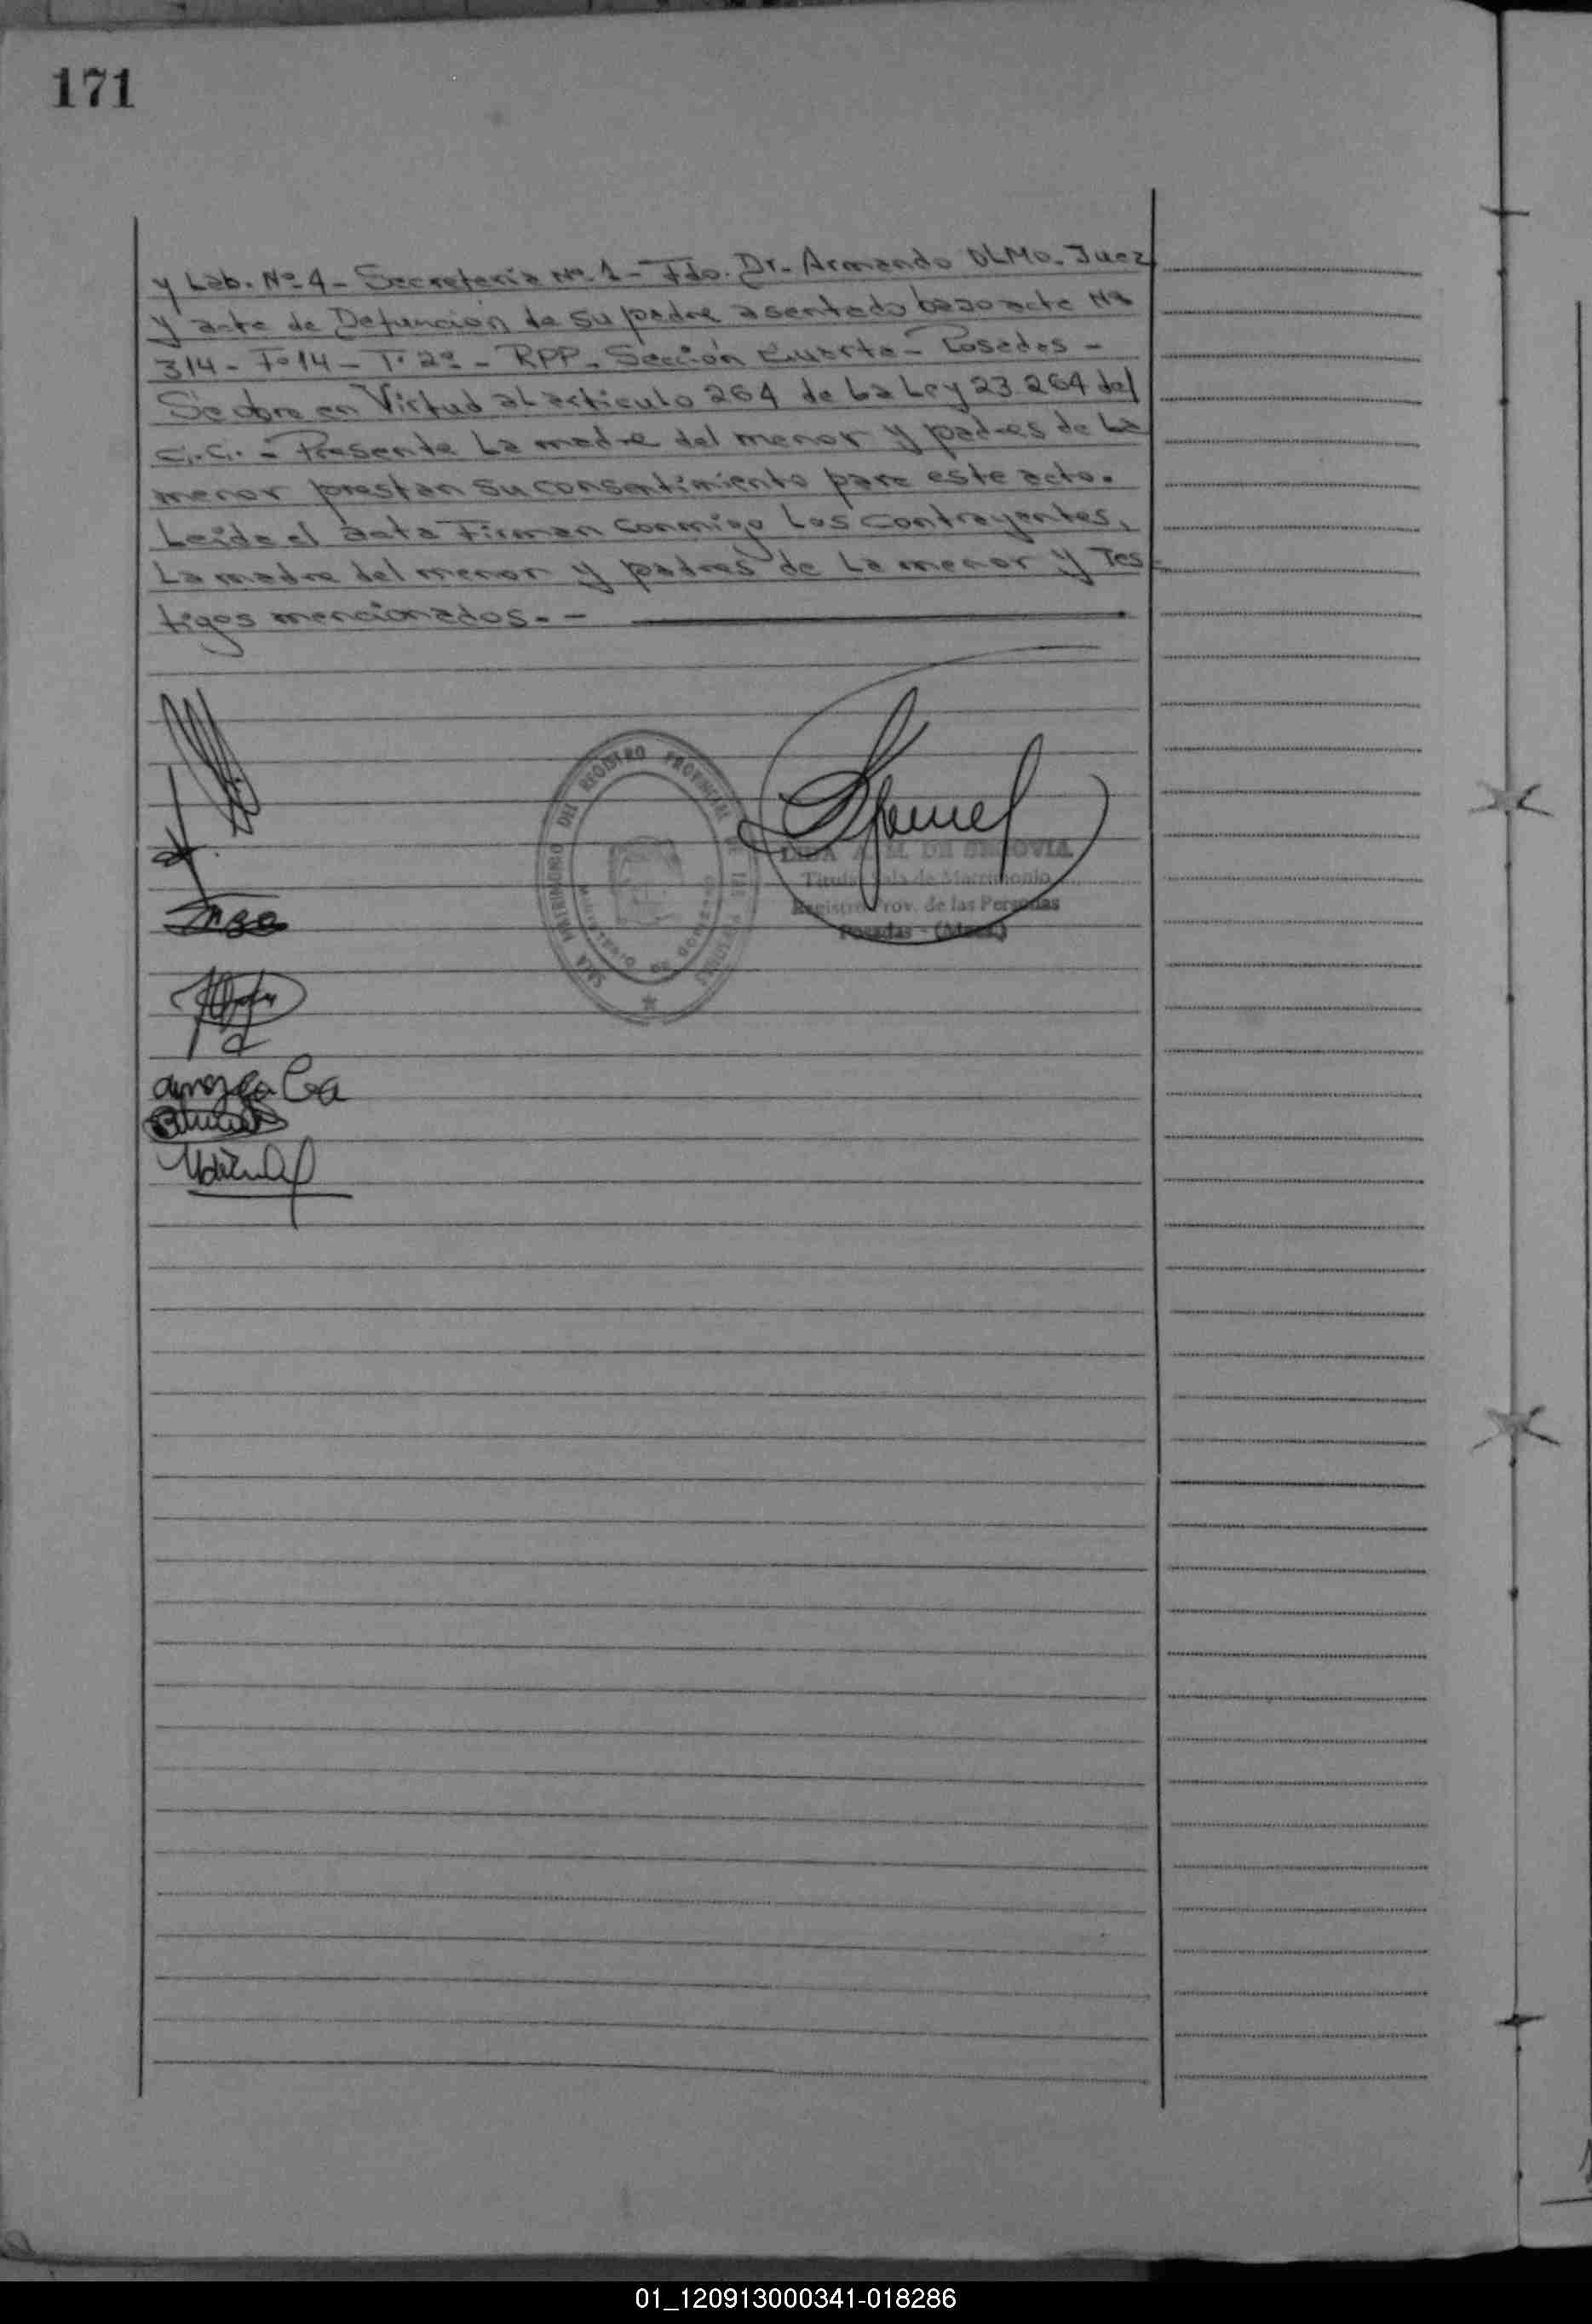 171
y Lab. Nº 4 - Secretería Nº 1 - Fdo. Dr. Armando OLMO. Juez
y acta de Defunción de su padre asentado bajo acta Nº
314 - Fº 14 - Tº 2º - RPP - Sección Cuarta - Posadas -
Se obra en Virtud al articulo 264 de La Ley 23.264 del
C.C. - Presente La madre del menor y padres de La
menor prestan su consentimiento para este acto.
Leida el acta Firman conmigo Los contrayentes,
La madre del menor y padres de La menor y Tes-
tigos mencionados. -
SALA MATRIMONIO DEL REGISTRO PROVINCIAL DE LAS PERSONAS
A. M. DE SEGOVIA
Titular Sala de Matrimonio
Registro Prov. de las Personas
Posadas - (Mnes.)
01_120913000341-018286